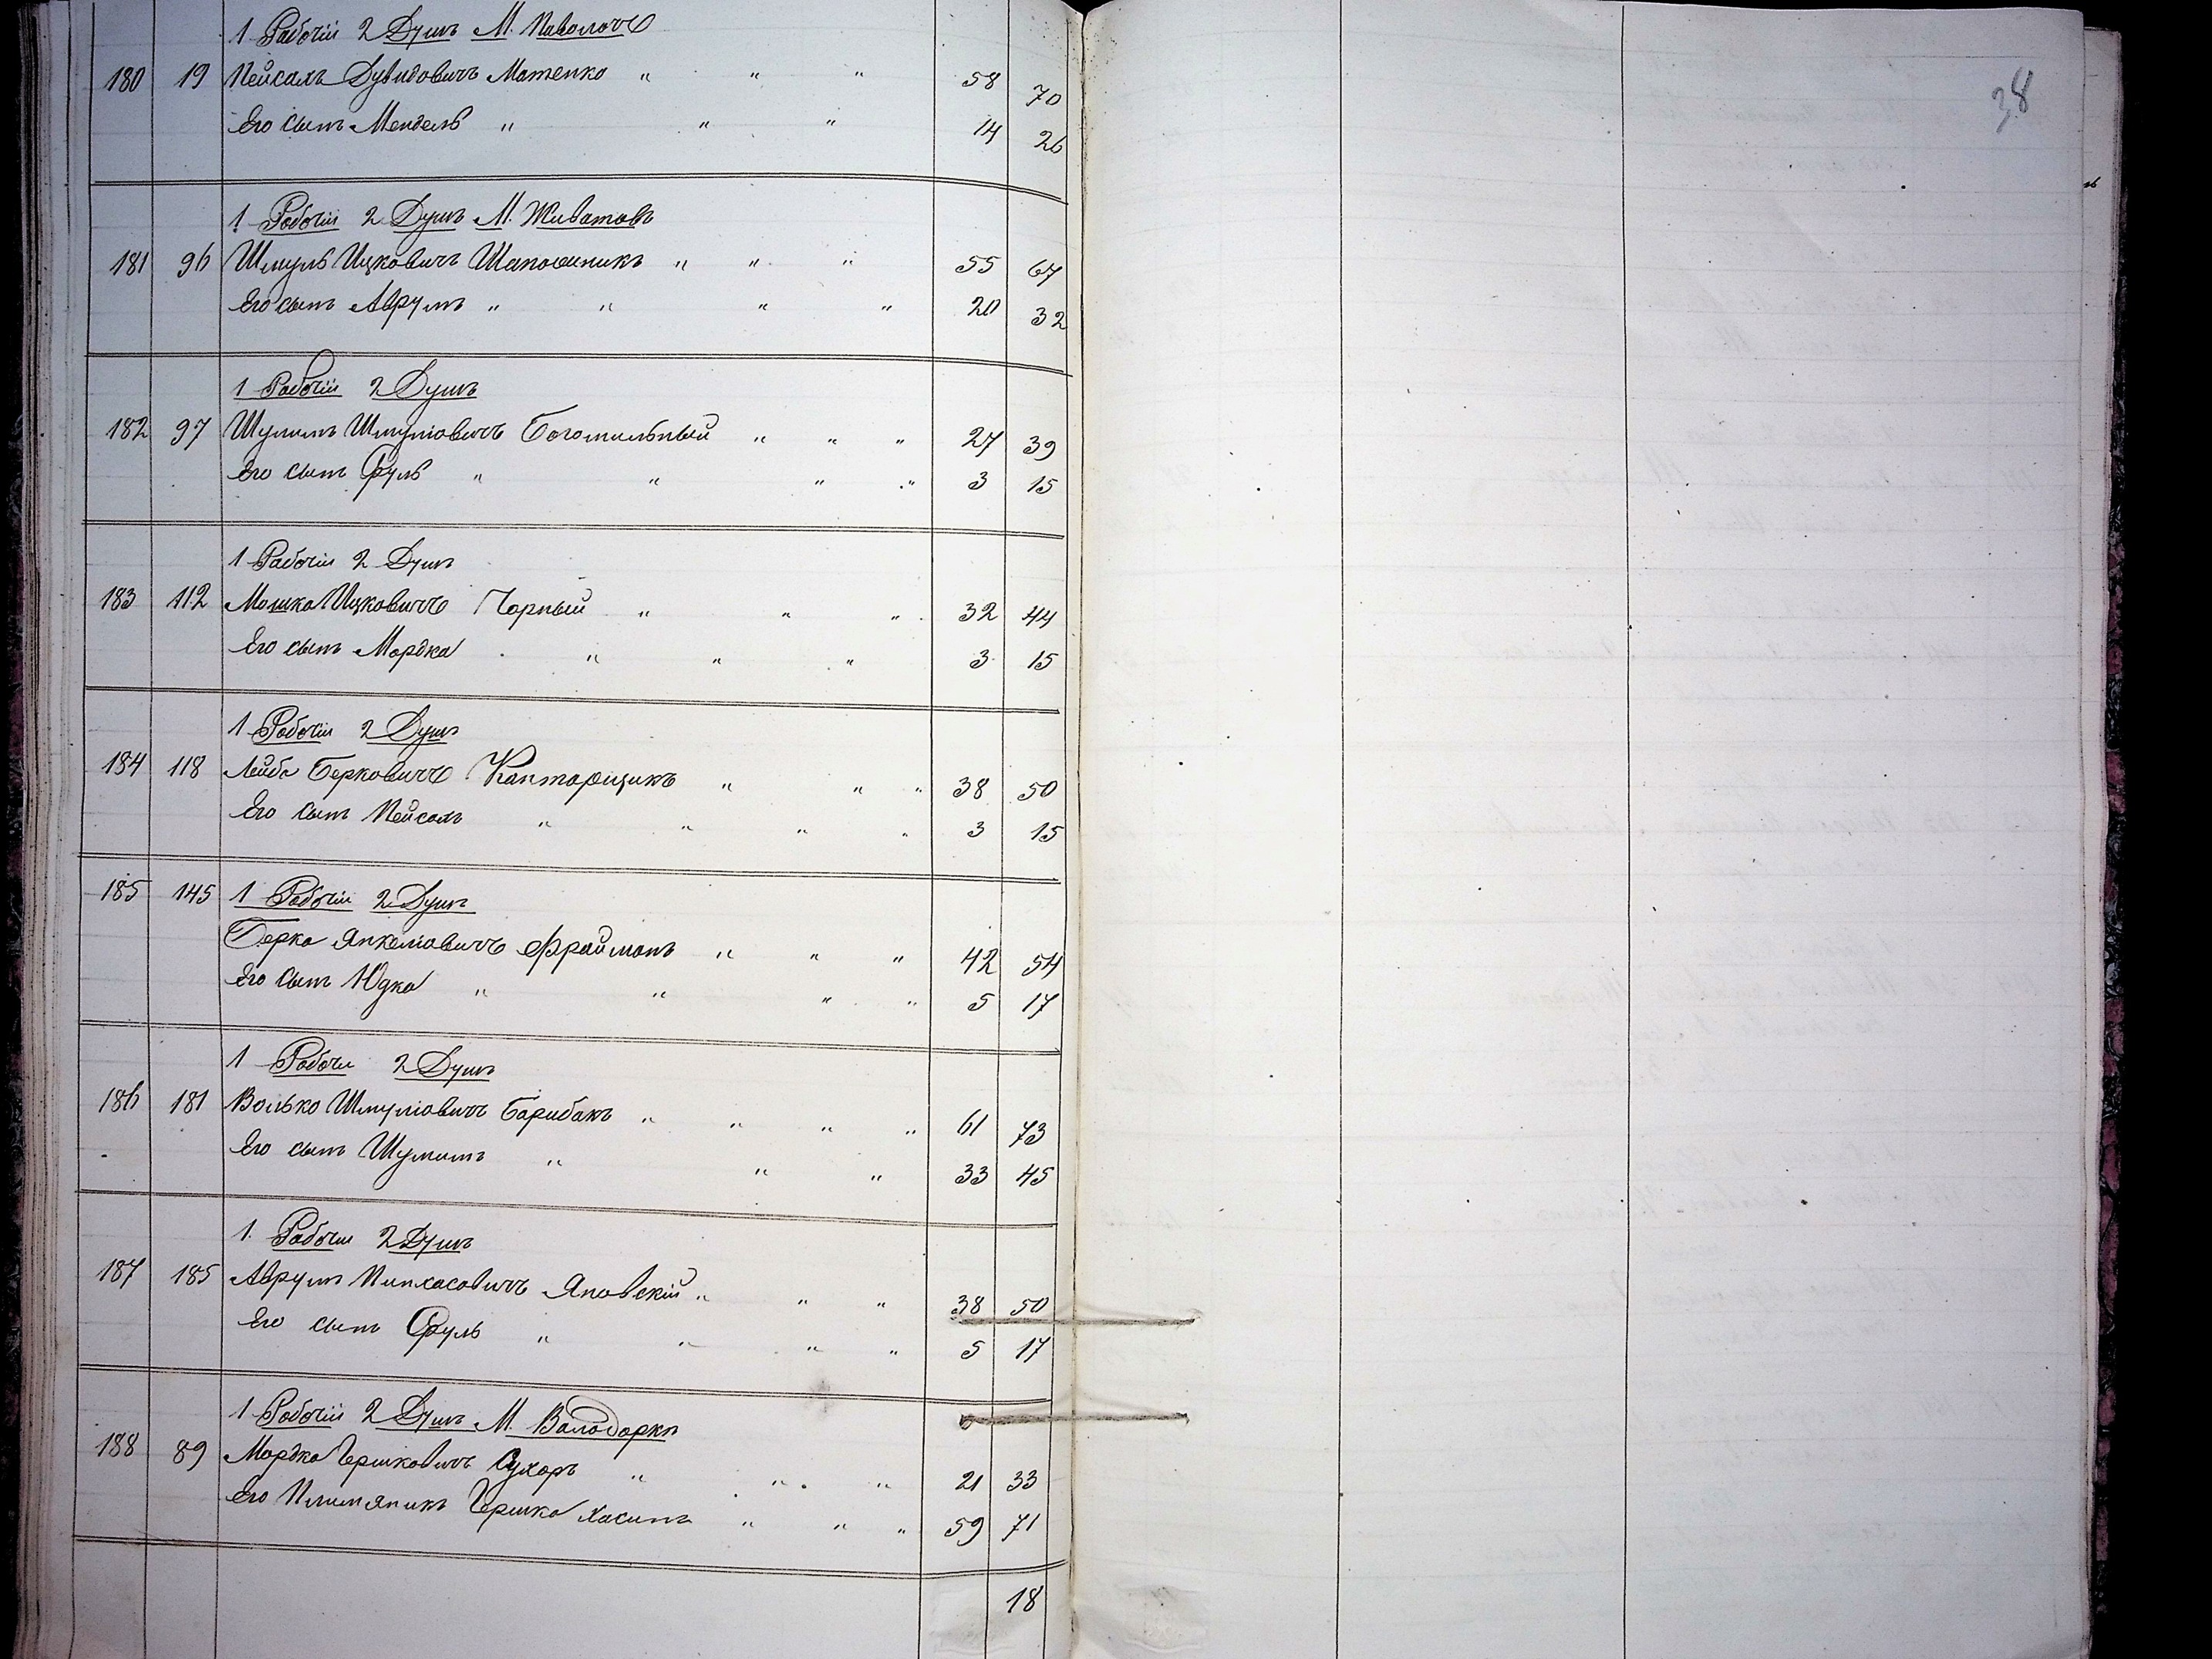 38
1 Рабочiй 2 Душъ М. Паволочъ
180 19 Пейсахъ Дувидовичъ Матенко " " " 58 70
Его сынъ Мендель " " " 14 26
1 Рабочiй 2 Душъ М. Животовъ
181 96 Шмуль Ицковичъ Шапошникъ " " " 55 67
Его сынъ Аврумъ " " " " 20 32
1 Рабочiй 2 Душъ
182 97 Шулимъ Шмулiовичъ Богомильный " " " 27 39
Его сынъ Сруль " " " " 3 15
1 Рабочiй 2 Душъ
183 112 Мошка Ицковичъ Чорный " " " 32 44
Его сынъ Мордка " " " 3 15
1 Рабочiй 2 Душъ
184 118 Лейба Берковичъ Канторщикъ " " " 38 50
Его сынъ Пейсахъ " " " " 3 15
185 145 1 Рабочiй 2 Душъ
Берка Янкелiовичъ Фрайманъ " " " 42 54
Его сынъ Юдка " " " " 5 17
1 Рабочи 2 Душъ
186 181 Волько Шмулiовичъ Барибакъ " " " " 61 73
Его сынъ Шулимъ " " " 33 45
1. Рабочiй 2 Душъ
187 185 Аврумъ Пинхасовичъ Яновскiй " " " 38 50
Его сынъ Сруль " " " " 5 17
1 Рабочiй 2 Душъ М. Володарка
188 89 Мордко Гершковичъ Сухаръ " " " 21 33
Его Племяникъ Гершко Хасинъ " " " 59 71
18